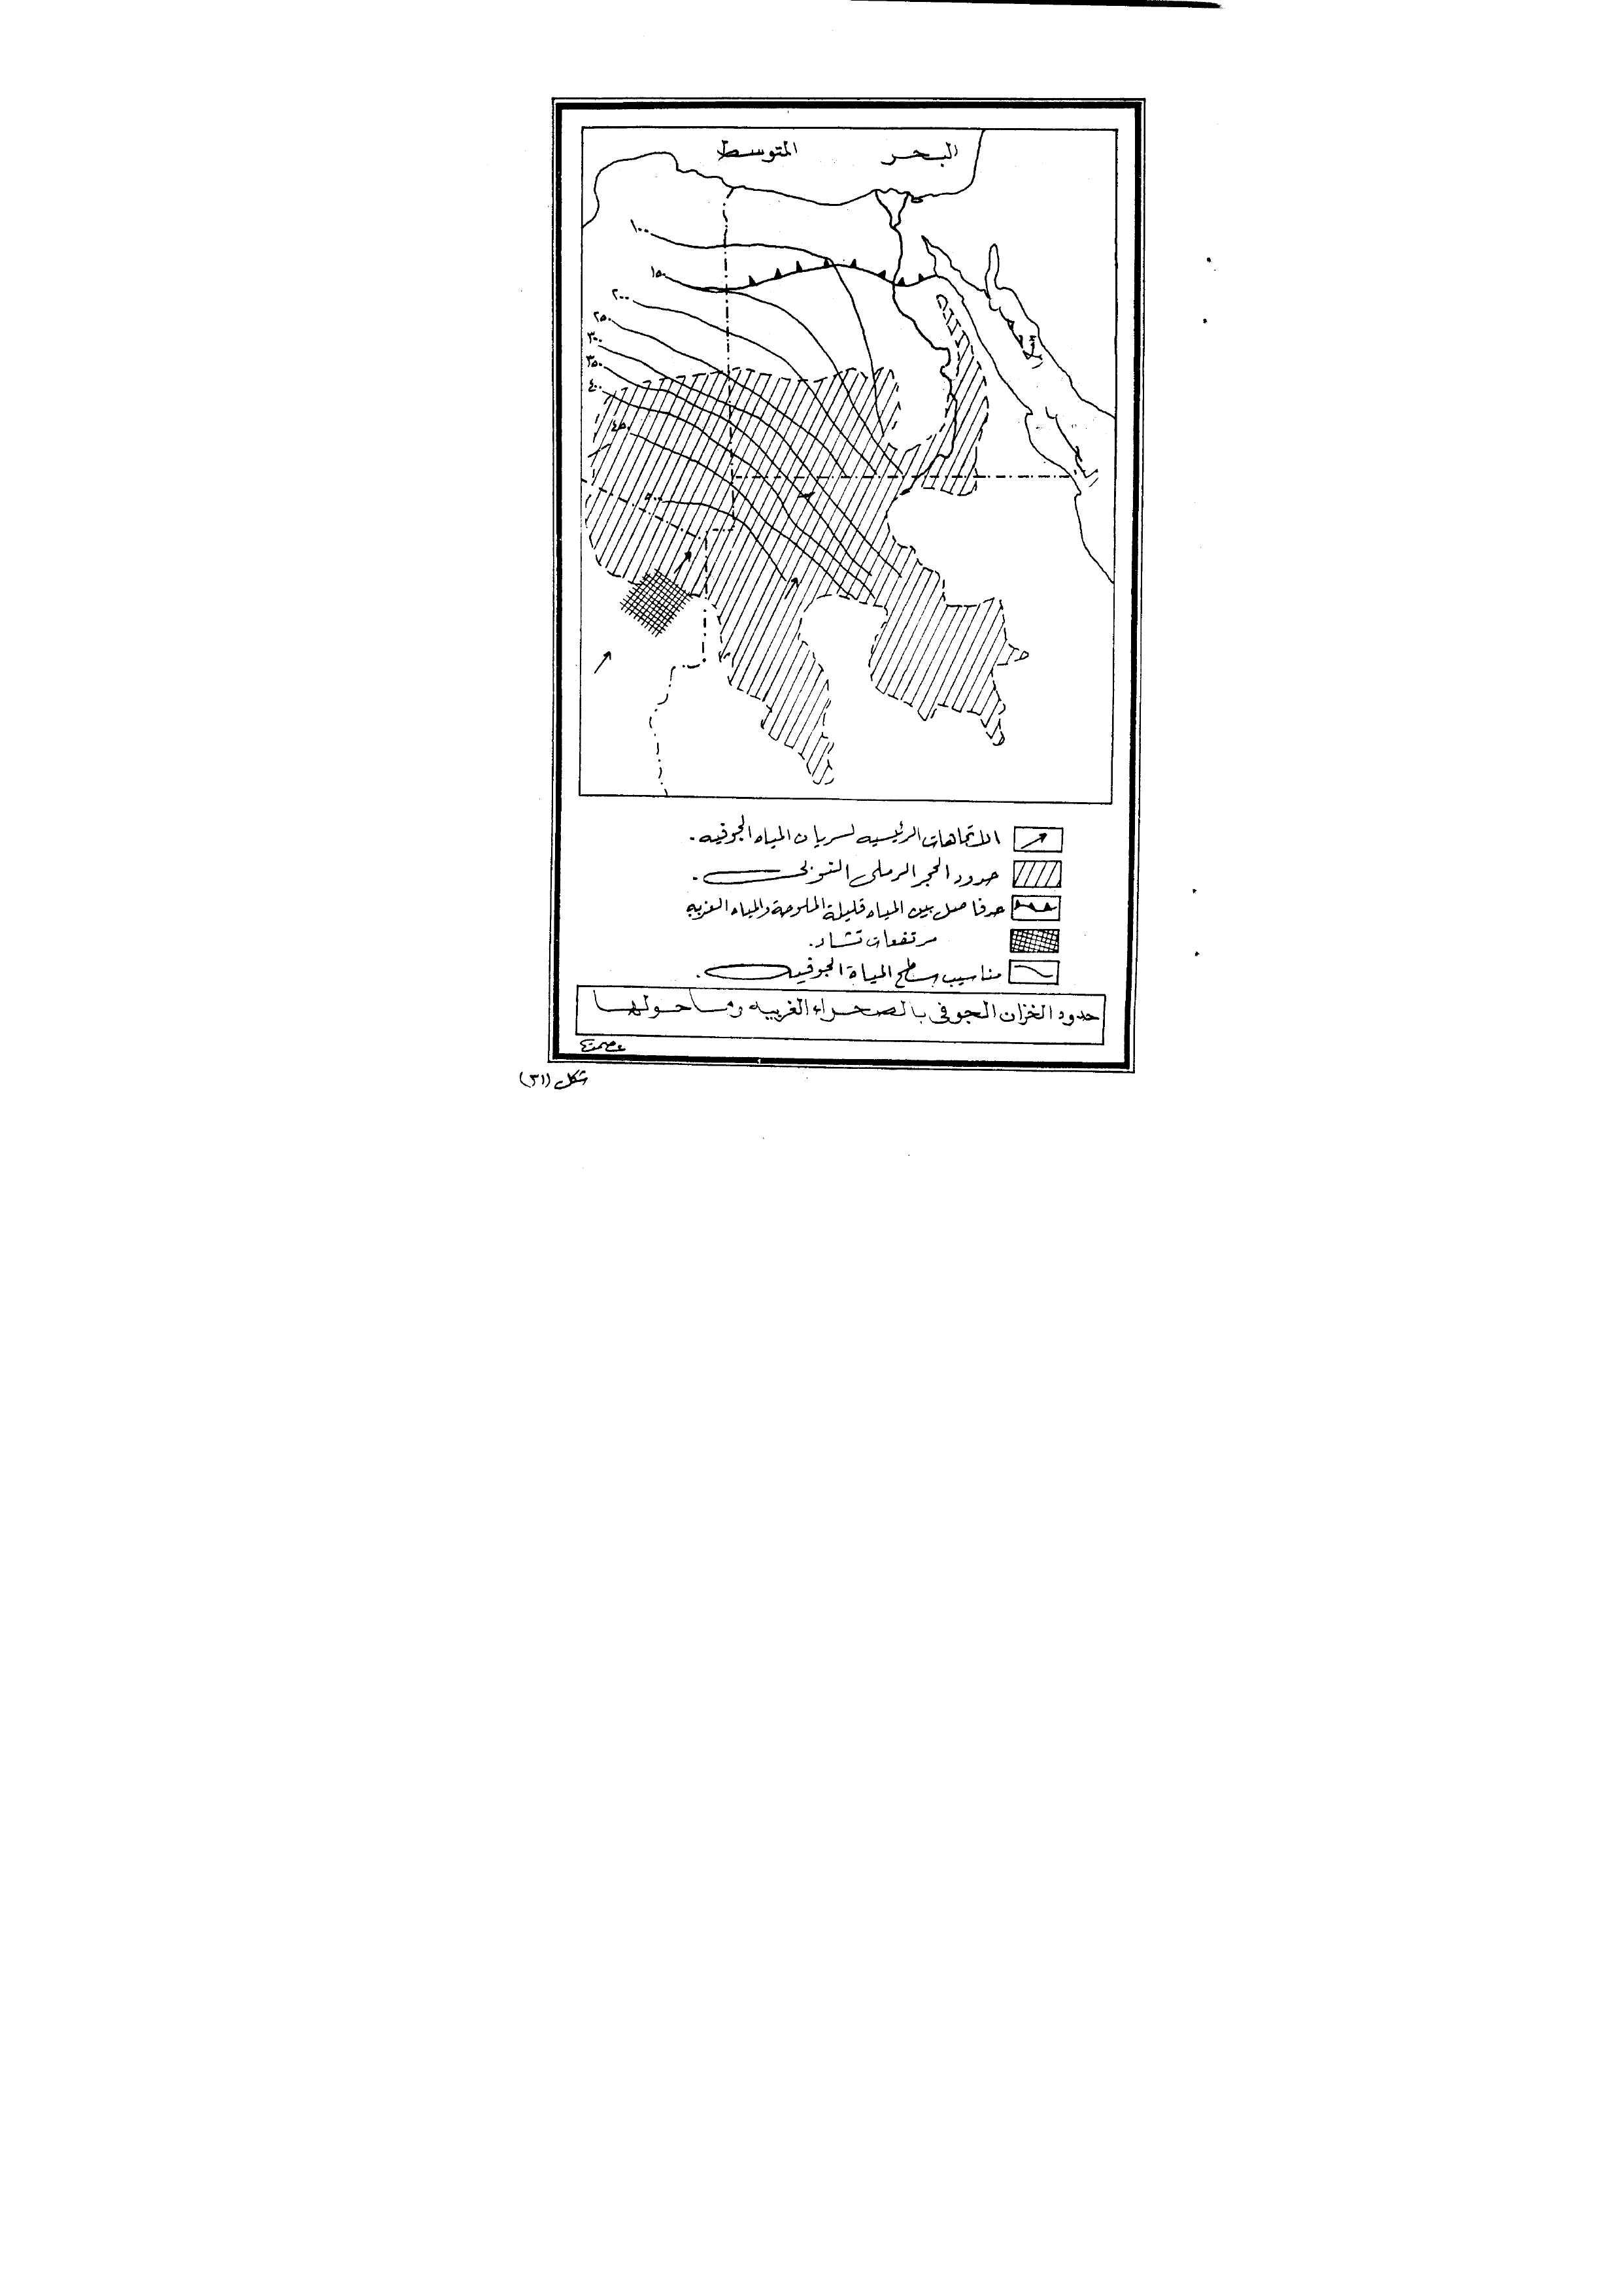 البحر المتوسط
١٠٠
١٥٠
٢٠٠
٢٥٠
٣٠٠
٣٥٠
٤٠٠
٤٥٠
٥٠٠
الاتجاهات الرئيسيه لسريان المياه الجوفيه .
حدود الحجر الرملى النوبى .
حد فاصل بين المياه قليلة الملوحة والمياه العذبه
مرتفعات تشاد .
مناسيب سطح المياة الجوفيه .
حدود الخزان الجوفى بالصحراء الغربيه وما حولها
عصمت
شكل (٣١)